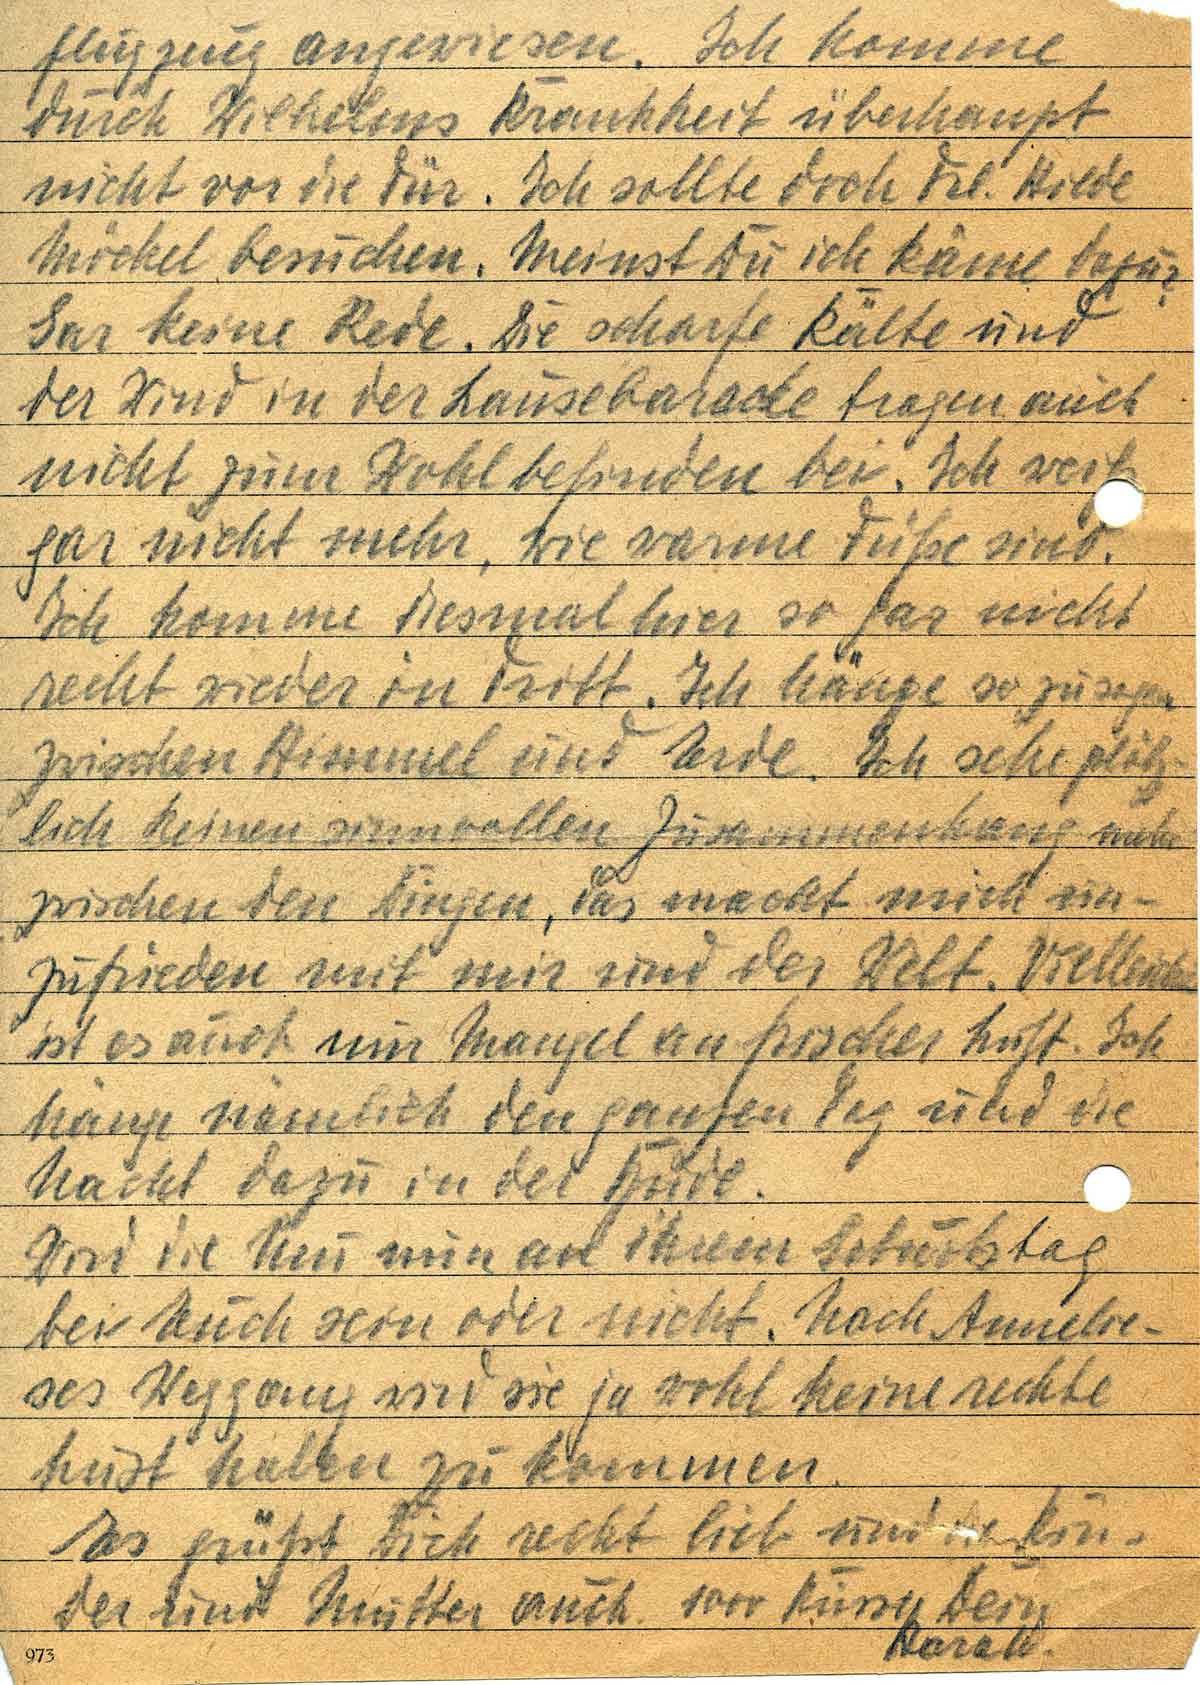 flugzeug angewiesen. Ich komme
durch Wilhelms Krankheit überhaupt
nicht vor die Tür. Ich sollte doch Frl. Hilde
Möckel besuchen. Meinst Du ich käme dazu?
Gar keine Rede. Die scharfe Kälte und
der Wind in der Lausebaracke tragen auch
nicht zum Wohlbefinden bei. Ich weiß
gar nicht mehr, wie warme Füße sind.
Ich komme diesmal hier so gar nicht
recht wieder in Tritt. Ich hänge so zusagen
zwischen Himmel und Erde. Ich sehe plötz-
lich keinen sinnvollen Zusammenhang mehr
zwischen den Dingen, das macht mich un-
zufrieden mit mir und der Welt. Vielleicht
ist es auch nur Mangel an frischer Luft. Ich
hänge nämlich den ganzen Tag und die
Nacht dazu in der Bude.
Wird die Mu nun an ihrem Geburtstag
bei Euch sein oder nicht. Nach Annelie-
ses Weggang wird sie ja wohl keine rechte
Lust haben zu kommen.
Es grüßt Dich recht lieb und die Kin-
der und Mutter auch. 1000 Küsse Dein
973